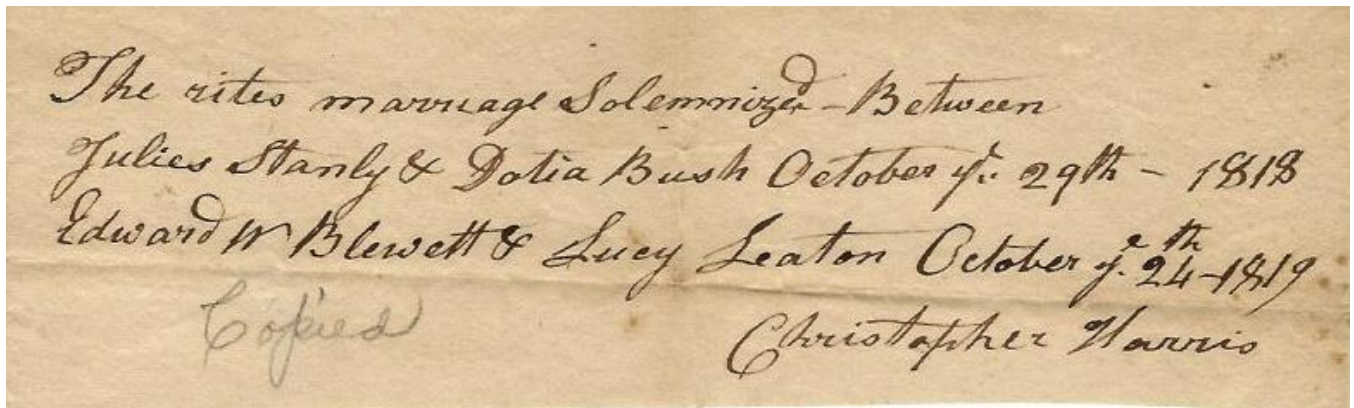 The rites marriage Solemnized - Between
Julies Stanly & Dotia Bush October ye. 29th - 1818
Edward W Blewett & Lucy Leaton October ye. 24th - 1819
Copied
Christopher Harris